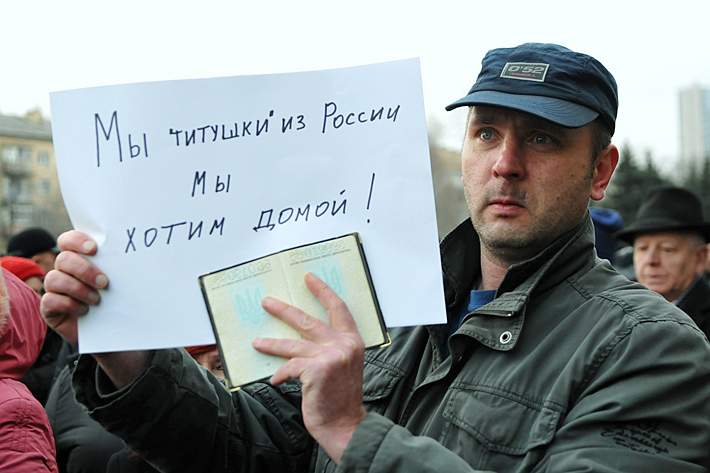 Мы "титушки" из России
мы
хотим домой!
O'52